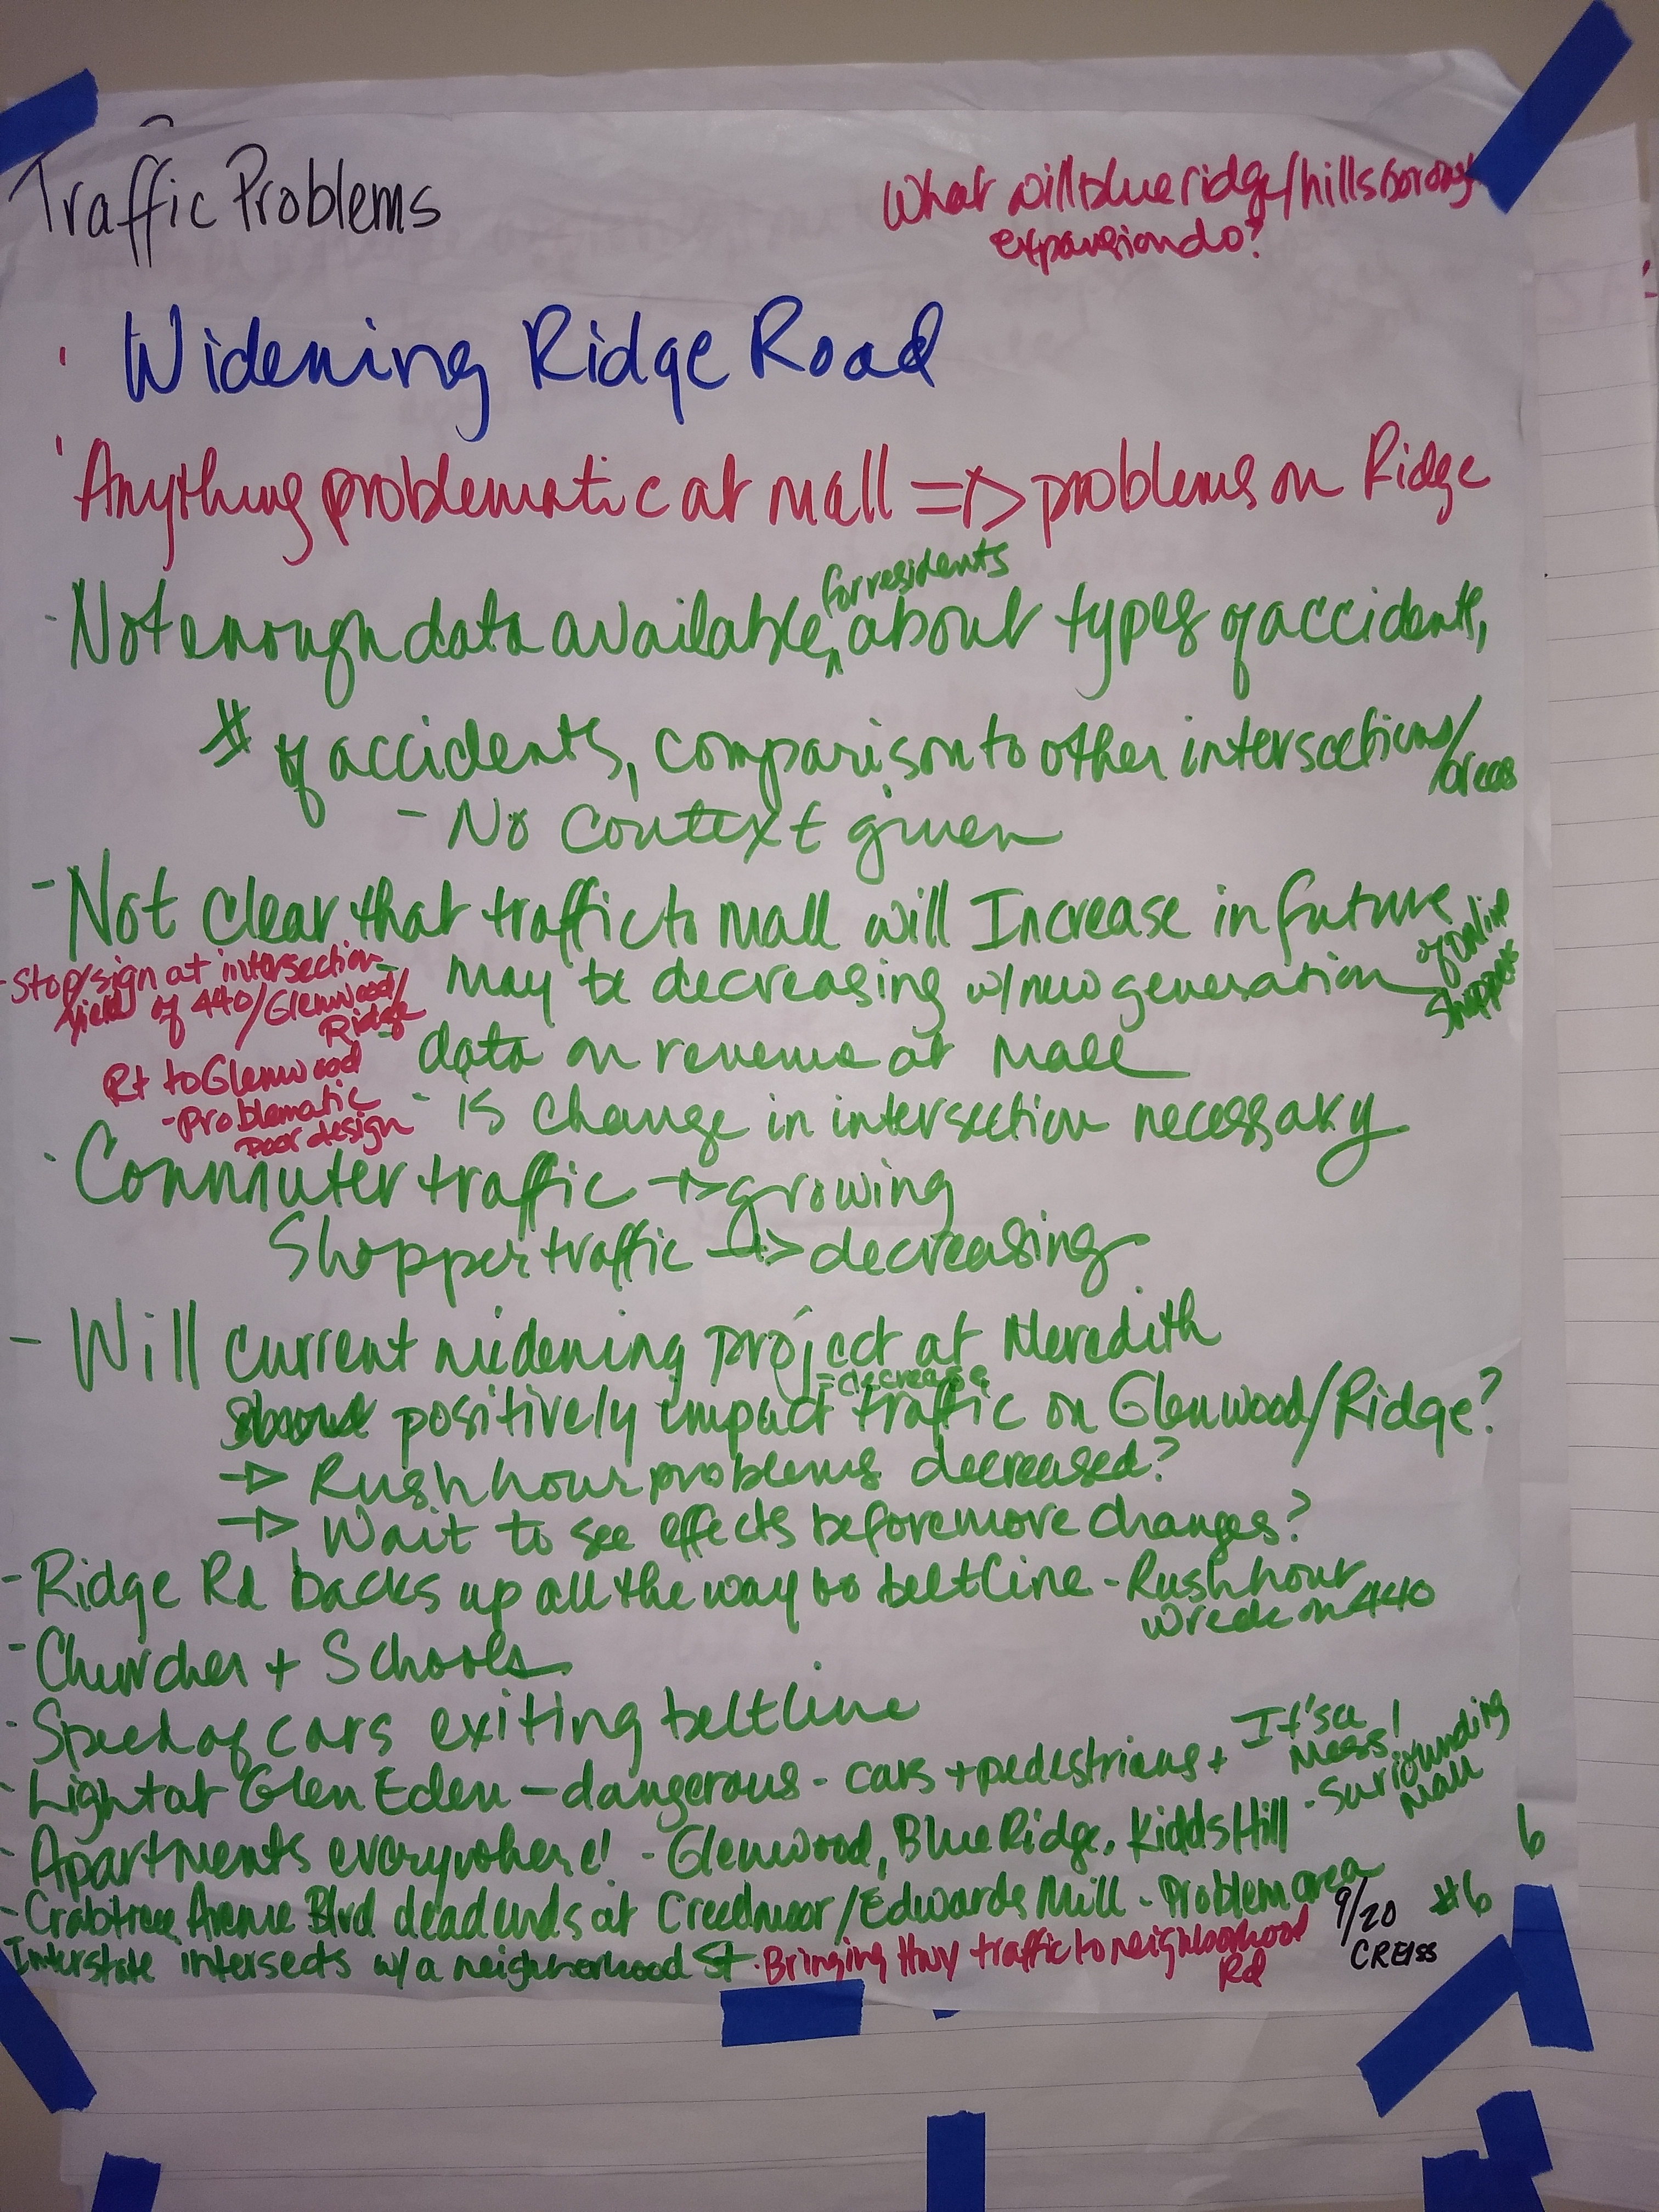 Traffic Problems
What will blue ridge/hillsborough
expansion do?
· Widening Ridge Road
· Anything problematic at mall => problems on Ridge
- Not enough data available, for residents about types of accidents,
# of accidents, comparison to other intersections/areas
- No context given
- Not clear that traffic to mall will Increase in future
- may be decreasing w/new generation of online shoppers
- data on revenue at mall
- is change in intersection necessary
- Stop/sign at intersection
yield of 440/Glenwood/
Ridge
Rt to Glenwood
- Problematic
Poor design
· Commuter traffic -> growing
Shopper traffic -> decreasing
- Will current widening project at Meredith
=decrease
positively impact traffic on Glenwood/Ridge?
-> Rush hour problems decreased?
-> Wait to see effects before more changes?
- Ridge Rd backs up all the way to beltline - Rush hour
wreck on 440
- Churches + Schools
· Speed of cars exiting beltline
- Light at Glen Eden - dangerous - cars + pedestrians + It's a
Mess!
- Apartments everywhere! - Glenwood, Blue Ridge, Kidds Hill - Surrounding
Mall
- Crabtree Avenue Blvd dead ends at Creedmoor/Edwards Mill - Problem area
Interstate intersects w/a neighborhood St · Bringing Hwy traffic to neighborhood
Rd
6
#6
9/20
CREISS